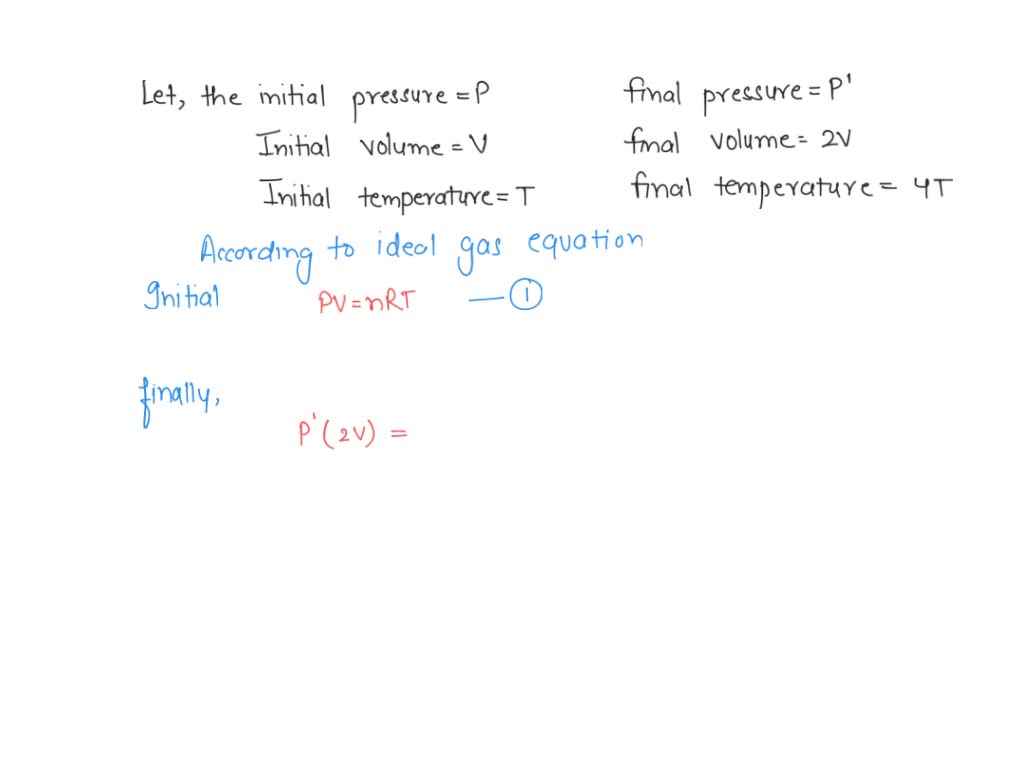 Let, the initial pressure = P final pressure = P'
Initial volume = V final volume = 2V
Initial temperature = T final temperature = 4T
According to ideal gas equation
Initial PV = nRT — ①
finally,
P'(2V) =